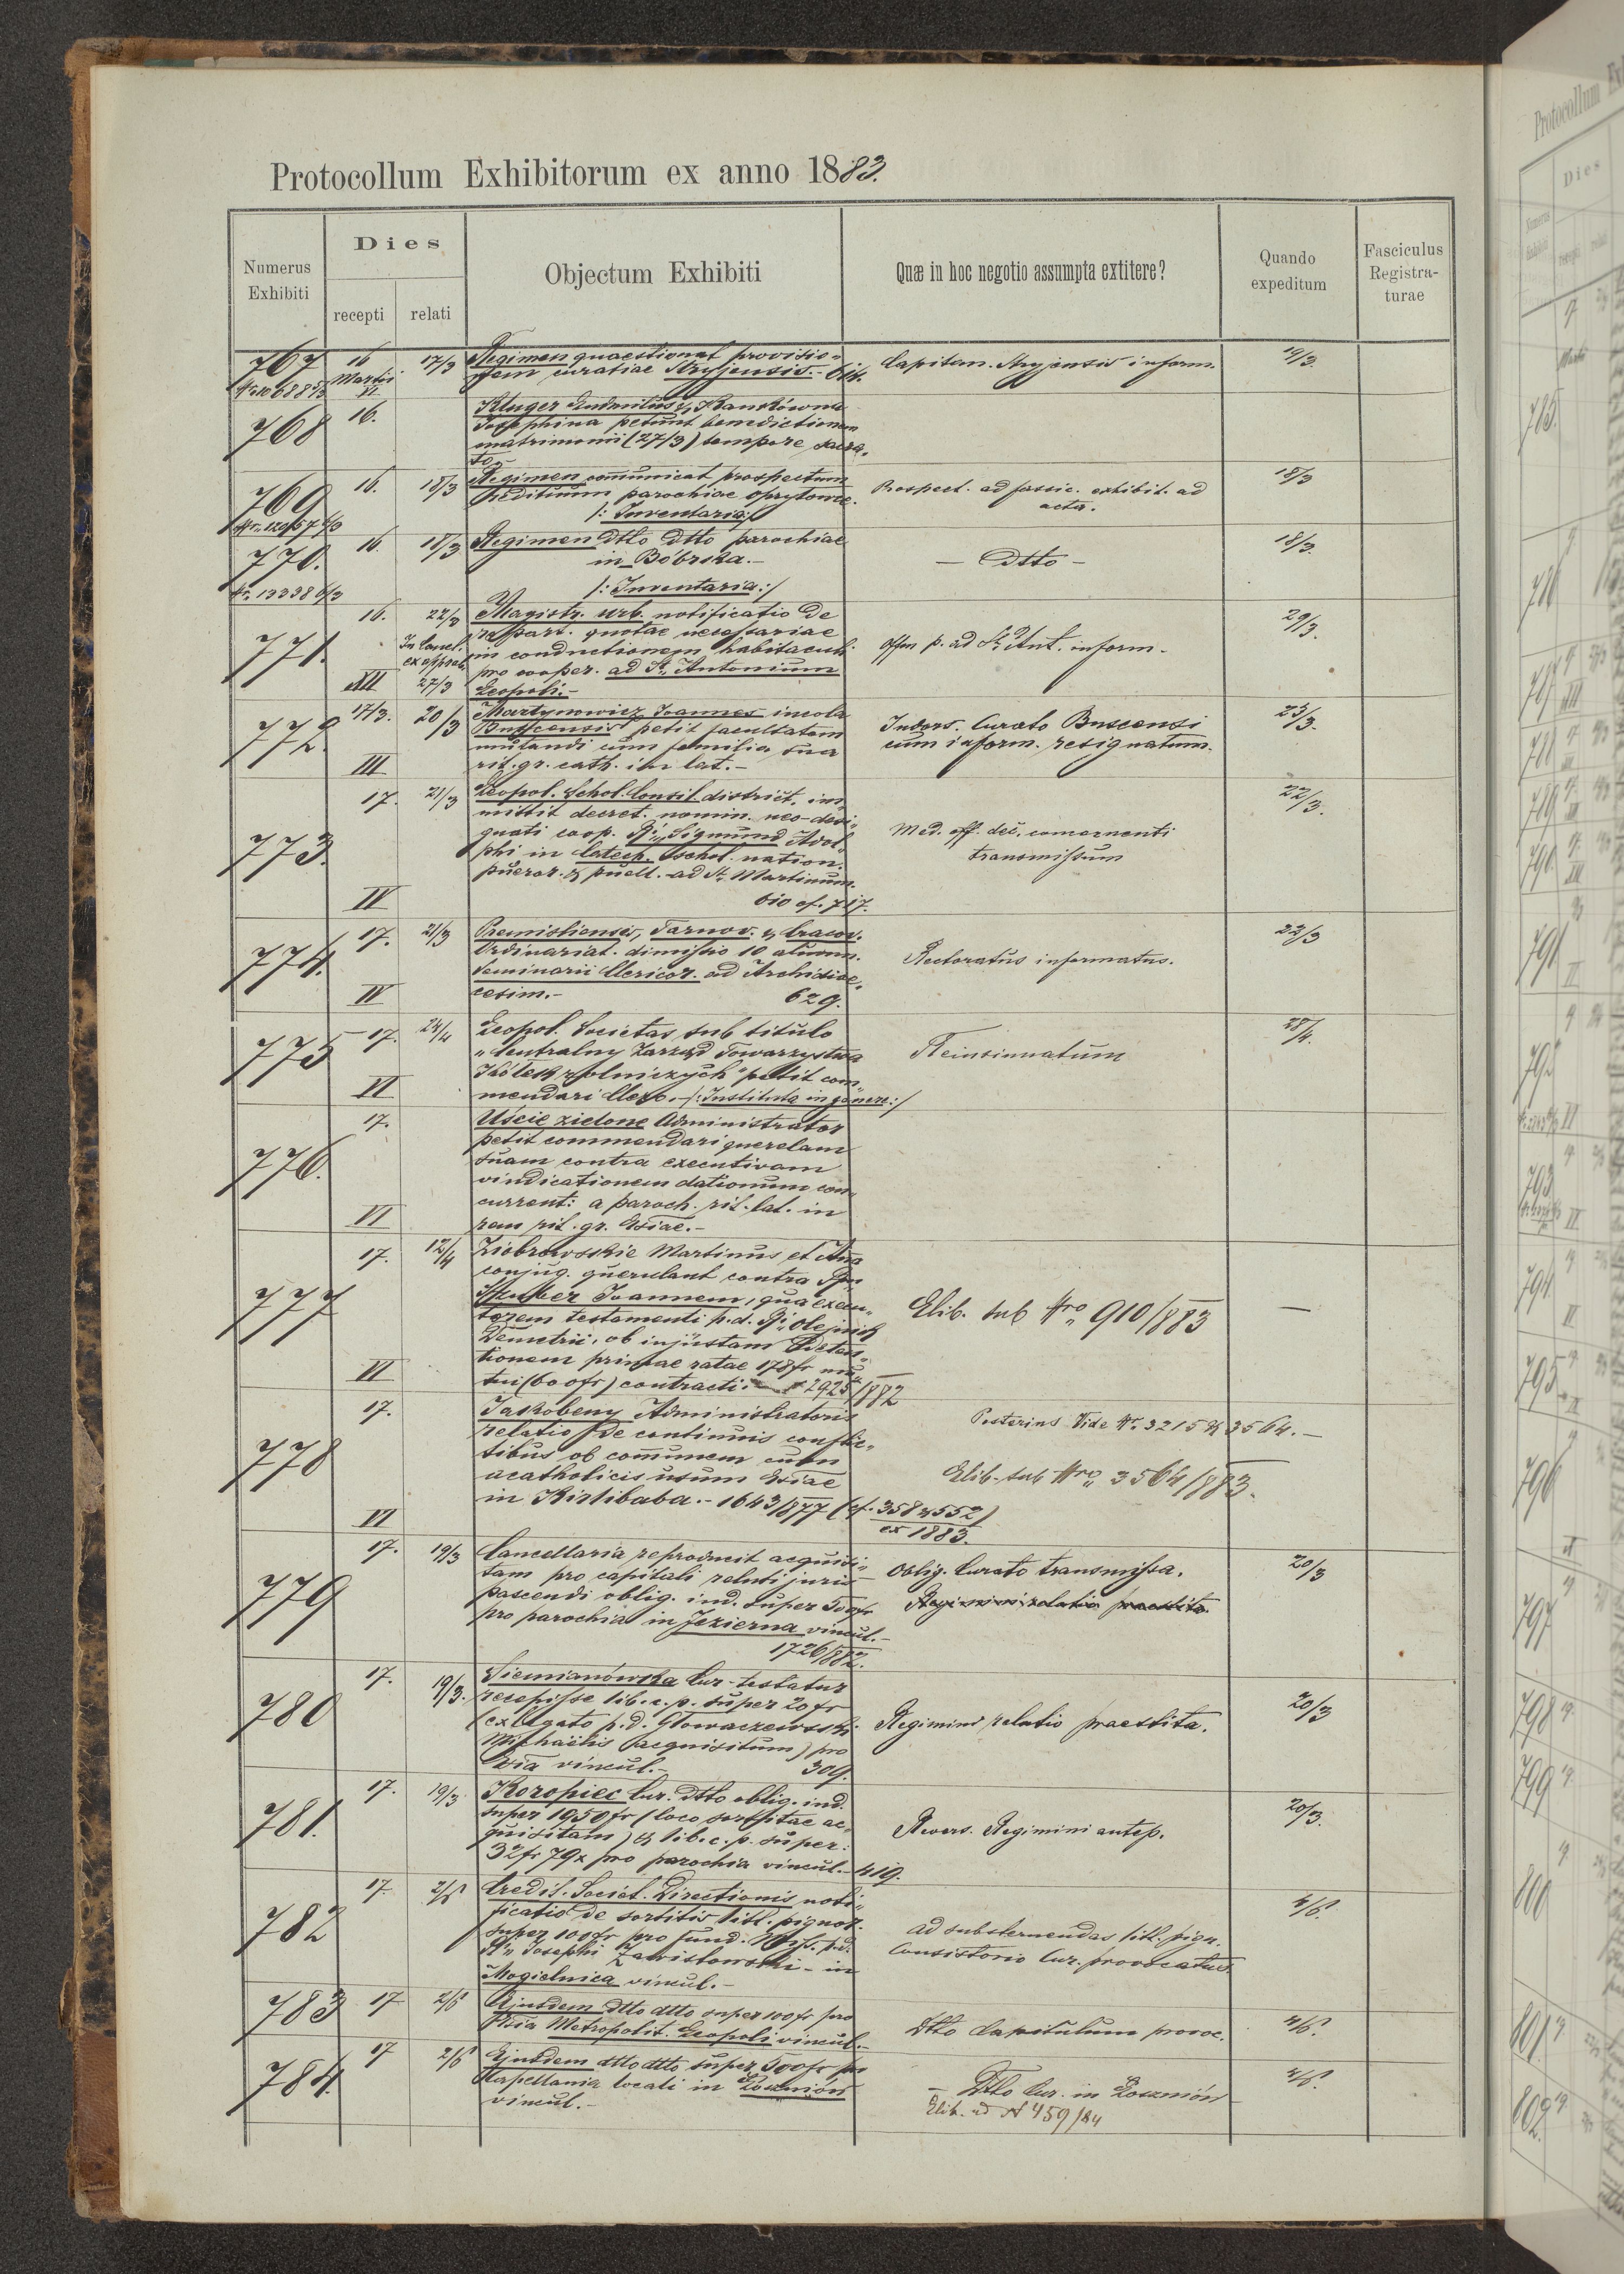 Protocollum Exhibitorum ex anno 1883.
Numerus Exhibiti
Dies
recepti
relati
Objectum Exhibiti
Quæ in hoc negotio assumpta extitere?
Quando expeditum
Fasciculus Registra-turae
767
16 Martii
VI
17/3
Regimen quaestionat provisio-
nem curatiae Stryjensis.-
Capitan. Stryjensis inform.
19/3.
768
16.
Kluger & Kanskówna
Josephina petunt benedictionem
matrimonii (27/3) tempore sacra-
to.-
769
16.
18/3
Regimen communicat prospectum
redituum parochiae
/: Inventaria:/
Prospect. ad fascic. exhibit. ad
acta.
18/3
770.
Nr. 12238 6/3
16.
18/3
Regimen dtto dtto parochiae
in Bóbrka.-
/: Inventaria:/
- dtto -
18/3.
771.
16.
XII
22/3
27/3
Magistr. urb. notificatio de
part. quotae necessariae
in conductionem habitaculi
pro cooper. ad St. Antonium
Leopoli.-
Offm p. ad St. Ant. inform.
29/3.
772.
17/3.
III
20/3
Martynowicz Joannes incola
Buscensis petit facultatem
mutandi cum familia sua
rit. gr. cath. in lat.-
Indors. Curato Buscensi
cum inform. resignatum.
23/3.
773.
17.
IV
21/3
Leopol. Schol. Consil. district. im-
mittit decret. nomin. neo-desi-
gnati coop. Sigmund Adol-
phi in catech. schol. nation.
pueror. & puell. ad St. Martinum.
cf. 717.
Med. off. dec. concernenti
transmissum
22/3.
774.
17.
IV
21/3
Premisliensis, Tarnov. & Cracov.
Ordinariat. dimissio 10 alumn.
seminarii Clericor. ad Archidioe-
cesim.-
629.
Rectoratus informatus.
22/3
775
17.
VI
24/4
Leopol. Societas sub titulo
"Centralny Zarząd Towarzystwa
Kółek rolniczych" petit com-
mendari Clero.- /: Instituta in genere:/
Reinsinuatum
28/4.
776.
17.
VI
Uście zielone Administrator
petit commendari querelam
suam contra executivam
vindicationem dationum con-
current: a paroch. rit. lat. in
rem rit. gr. Ecclae.-
777
17.
VI
12/4
Ziobrowskie Martinus et Anna
conjug. querulant contra
Joannem, qua execu-
torem testamenti p.d. Olejnik
Demetrii, ob injustam deten-
tionem primae ratae 178 fr mu-
tui (600 fr) contracti: 2925/882
Elib. sub Nro 910/883
—
778
17.
VI
Jakobeny Administratoris
relatio de continuis conflic-
tibus ob communem cum
acatholicis usum Ecclae
in Kirlibaba.- 1643/877 (cf. 358 & 552)
ex 1883.
Posterius Vide Nr. 3215 & 3564.-
Elib. sub Nro 3564/883.
779
17.
19/3
Cancellaria reproducit acquisi-
tam pro capitali reluti juris
pascendi oblig. ind. super 500 fr
pro parochia in Jezierna vincul.-
1726/882.
Oblig. Curato transmissa.
Regimini relatio praestita.
20/3
780
17.
19/3.
Siemianówka Cur. testatur
recepisse lib. c. p. super 20 fr
(ex legato p.d. Głowaczewski
Michaëlis acquisitum) pro
Ecclia vincul.-
309.
Regimini relatio praestita.
20/3
781.
17.
19/3
Koropiec Cur. dtto oblig. ind.
super 1050 fr (loco sortitae ac-
quisitam) & lib. c. p. super
32 fr 79 x pro parochia vincul.- 419.
Revers. Regimini antep.
20/3.
782
17
2/5
Credit. Societ. Directionis noti-
ficatio de sortitis litt. pignor.
super 100 fr pro fund. Miss. p.d.
Josephi Zawistowski - in
Mogielnica vincul.-
ad substernendas litt. pign.
Consistorio Cur. provocatus
4/5.
783
17
2/5
Ejusdem dtto dtto super 100 fr pro
Metropolit. Leopoli vincul.-
dtto Capitulum provoc.
4/5.
784.
17
2/5
Ejusdem dtto dtto super 500 fr pro
Capellania locali in Łoszniów
vincul.-
- Dtto Cur. in Łoszniów
Elib. ad N 459/84
4/5.